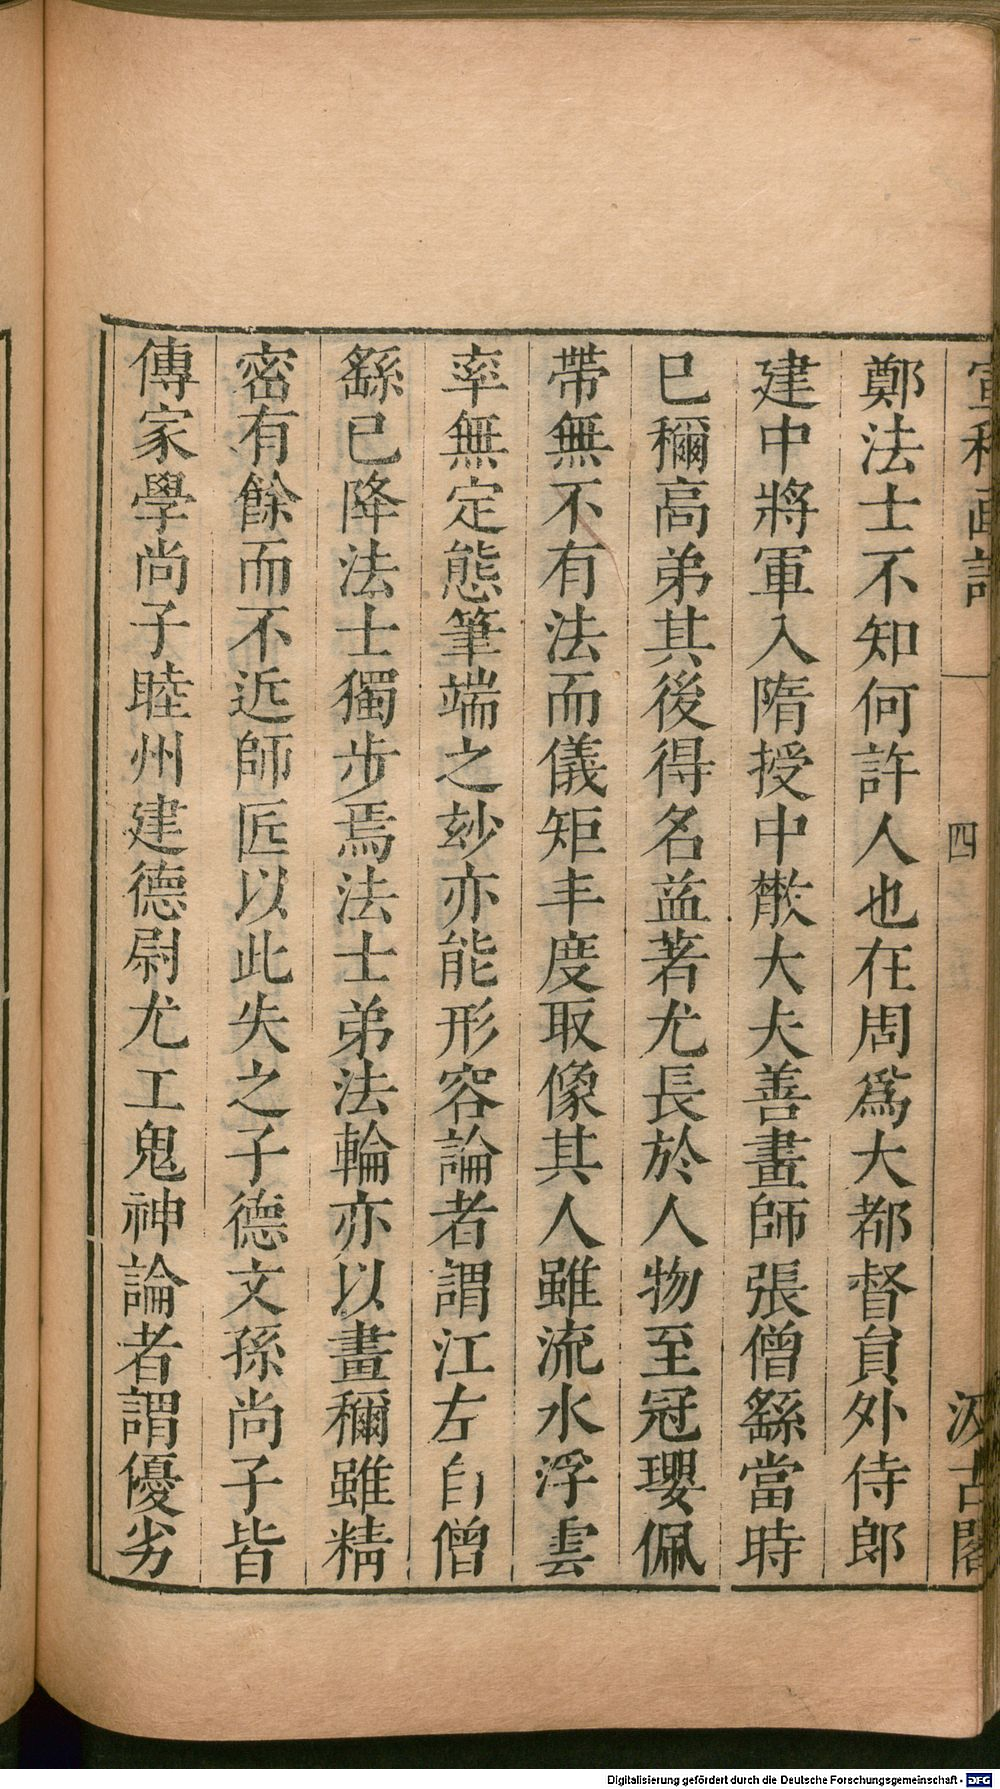 宣和画譜 一 四 汲古閣
鄭法士不知何許人也在周爲大都督員外侍郎
建中將軍入隋授中散大夫善畫師張僧繇當時
已稱高弟其後得名益著尤長於人物至冠瓔佩
帶無不有法而儀矩丰度取像其人雖流水浮雲
率無定態筆端之玅亦能形容論者謂江左自僧
繇已降法士獨步焉法士弟法輪亦以畫稱雖精
密有餘而不近師匠以此失之子德文孫尚子皆
傳家學尚子睦州建德尉尤工鬼神論者謂優劣
Digitalisierung gefördert durch die Deutsche Forschungsgemeinschaft - DFG